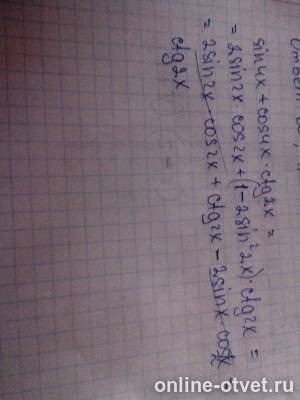 sin4x + cos4x · ctg2x =
= 2sin2x · cos2x + (1 - 2sin²2x) · ctg2x =
= 2sin2x · cos2x + ctg2x - 2sinx · cos2x
ctg2x
online-otvet.ru